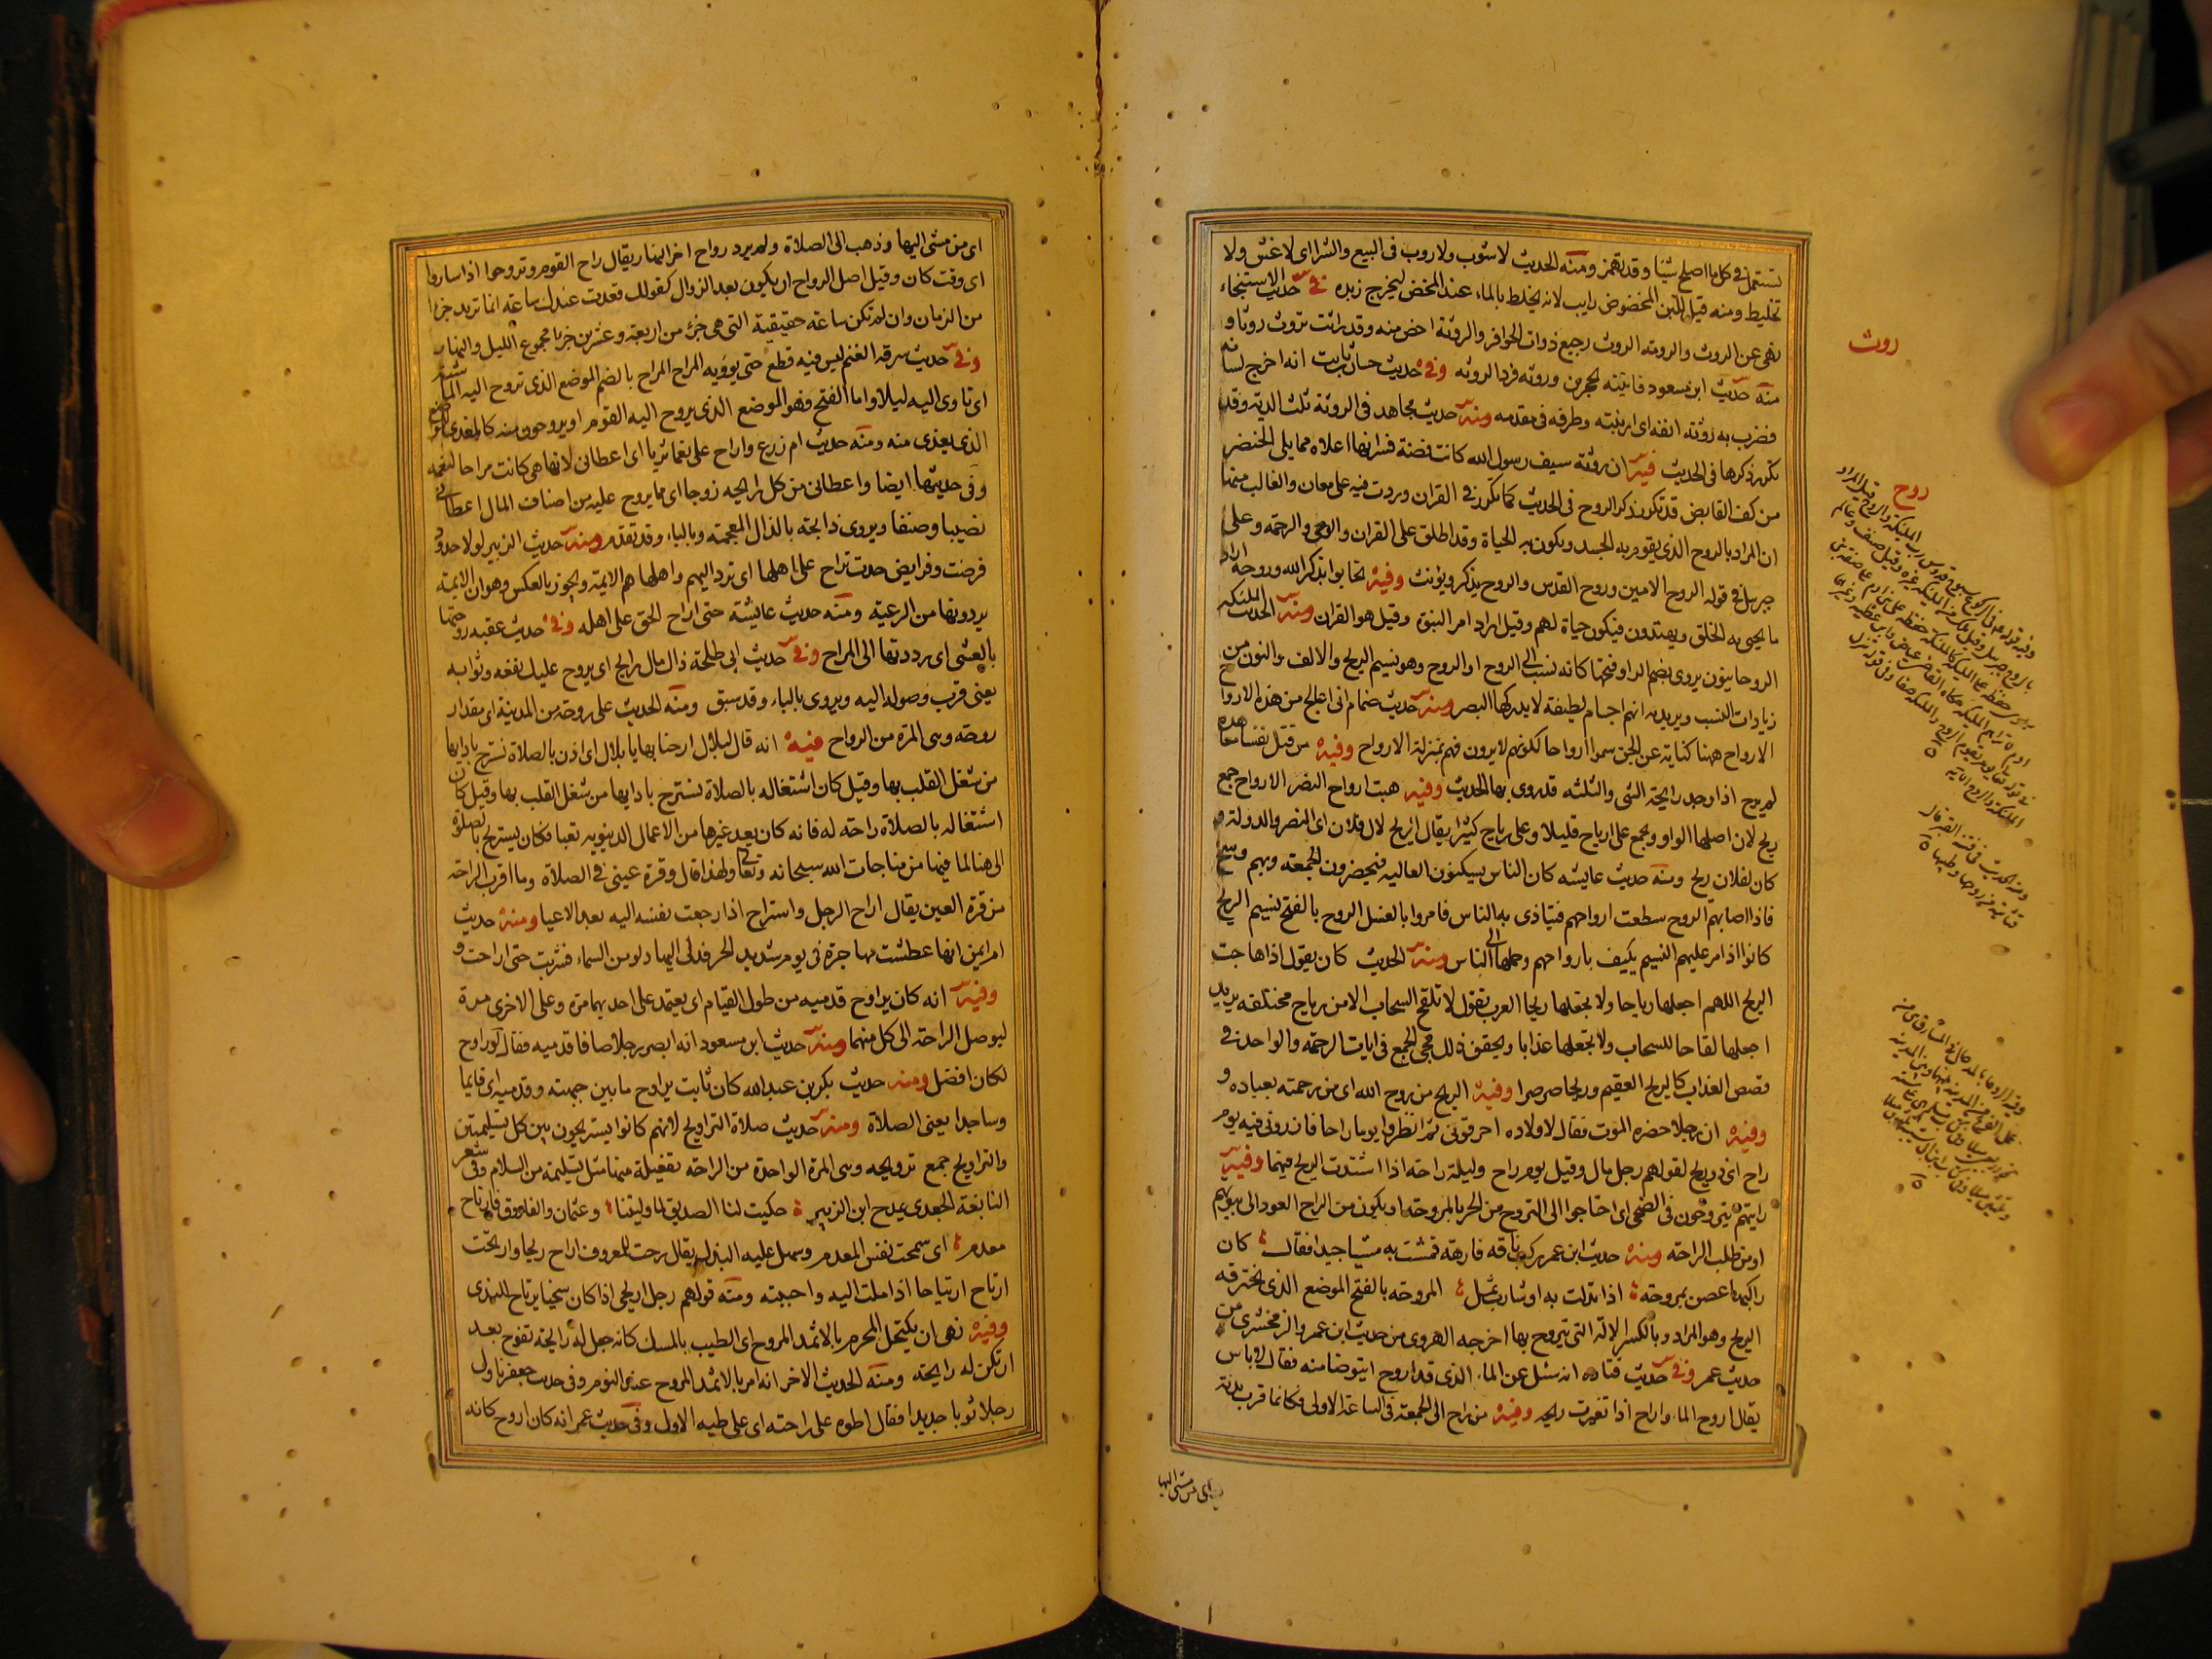 تستعمل في كل ما اصلح شيا وقد تهمز ومنه الحديث لا شوب ولا روب في البيع والشرا اي لا غش ولا
تخليط ومنه قيل للبن المخضوض رايب لانه يخلط بالماء عند المخض ليخرج زبده في حديث الاستنجاء
نهى عن الروث والرومه الروث رجيع ذوات الحوافر والروثة اخص منه وقد راثت تروث روثا و
منه حديث ابن مسعود فاتيته بحجرين وروثه فرد الروثه وفي حديث حسان بن ثابت انه اخرج لسانه
فضرب به روثة انفه اي ارنبته وطرفه في مقدمه ومنه حديث مجاهد في الروثة ثلث الدية وقد
تكرر ذكرها في الحديث فيه ان روثة سيف رسول الله كانت فضة فسر انها اعلاه مما يلي الخنصر
من كف القابض قد تكرر ذكر الروح في الحديث كما تكرر في القران ووردت فيه على معان والغالب منها
ان المراد بالروح الذي يقوم به الجسد ويكون به الحياة وقد اطلق على القران والوحي والرحمة وعلى
جبريل في قوله الروح الامين وروح القدس والروح يذكر ويؤنث وفيه تحابوا بذكر الله وروحه اراد
ما يحيى به الخلق ويهتدون فيكون حياة لهم وقيل اراد امر النبوة وقيل هو القران ومنه الحديث الملئكه
الروحانيون يروى بضم الرا وفتحها كانه نسب الى الروح او الروح وهو نسيم الريح والالف والنون من
زيادات النسب ويريد به انهم اجسام لطيفة لا يدركها البصر ومنه حديث ضمام اني اعالج من هذه الارواح
الارواح ههنا كناية عن الجن سموا ارواحا لكونهم لا يرون فهم بمنزلة الارواح وفيه من قتل نفسا معاهده
لم يرح اذا وجد رايحة الشي والثلثه قد روى بها الحديث وفيه هبت ارواح النصر الارواح جمع
ريح لان اصلها الواو ويجمع على ارياح قليلا وعلى رياح كثيرا يقال الريح لال فلان اي النصر والدولة و
كان لفلان ريح ومنه حديث عايشه كان الناس يسكنون العاليه فيحضرون الجمعة وبهم وسخ
فاذا اصابهم الروح سطعت ارواحهم فيتاذى به الناس فامروا بالغسل الروح بالفتح نسيم الريح
كانوا اذا مر عليهم النسيم يكيف بارواحهم وحملها الى الناس ومنه الحديث كان يقول اذا هاجت
الريح اللهم اجعلها رياحا ولا تجعلها ريحا العرب تقول لا تلقح السحاب الا من رياح مختلفه يريد
اجعلها لقاحا للسحاب ولا تجعلها عذابا ويحقق ذلك مجي الجمع في ايات الرحمة والواحد في
قصص العذاب كالريح العقيم وريحا صرصرا وفيه الريح من روح الله اي من رحمته بعباده و
وفيه ان رجلا حضره الموت فقال لاولاده احرقوني ثم انظروا يوما راحا فاذروني فيه يوم
راح اي ذو ريح لقولهم رجل مال وقيل يوم راح وليلة راحة اذا اشتدت الريح فيهما وفيه
رايتهم يتروحون في الضحى اي احتاجوا الى التروح من الحر بالمروحه او يكون من الراح العود الى بيوتهم
او من طلب الراحه ومنه حديث ابن عمر ركب ناقه فارهة فمشت به مشيا جيدا فقال كان
راكبها غصن بمروحة اذا تدلت به او شارب ثمل المروحه بالفتح الموضع الذي يخترقه
الريح وهو المراد وبالكسر الالة التي يتروح بها اخرجه الهروي من حديث ابن عمر والزمخشري من
حديث عمر وفي حديث قتاده انه سئل عن الماء الذي قد اروح ايتوضا منه فقال لا باس
يقال اروح الماء واراح اذا تغيرت ريحه وفيه من راح الى الجمعة في الساعة الاولى فكانما قرب بدنة
اي من مشى اليها
روث
روح
اي من مشى اليها وذهب الى الصلاة ولم يرد رواح اخر النهار يقال راح القوم وتروحوا اذا ساروا
اي وقت كان وقيل اصل الرواح ان يكون بعد الزوال كقولك قعدت عندك ساعة انما تريد جزا
من الزمان وان لم تكن ساعة حقيقية التي هي جزء من اربعة وعشرين جزءا مجموع الليل والنهار
وفي حديث سرقة الغنم ليس فيه قطع حتى يؤويه المراح المراح بالضم الموضع الذي تروح اليه الماشية
اي تاوى اليه ليلا واما الفتح فهو الموضع الذي يروح اليه القوم او يروحون منه كالمغدى للموضع
الذي يغدى منه ومنه حديث ام زرع واراح علي نعما ثريا اي اعطاني لانها هي كانت مراحا لنعمه
وفي حديثها ايضا واعطاني من كل رايحه زوجا اي مما يروح عليه من اصناف المال اعطاني
نصيبا وصنفا ويروى ذابحة بالذال المعجمة وبالباء وقد تقدم ومنه حديث الزبير لولا حدود
فرضت وفرايض حدت تراح على اهلها اي ترد اليهم واهلها هم الايمة ويجوز بالعكس وهو ان الايمة
يردونها من الرعية ومنه حديث عايشة حتى اراح الحق على اهله وفي حديث عقبه روحتها
بالعشي اي رددتها الى المراح وفي حديث ابي طلحة ذاك مال رايح اي يروح عليك نفعه وثوابه
يعني قرب وصوله اليه ويروى بالباء وقد سبق ومنه الحديث على روحة من المدينة اي مقدار
روحة وهي المرة من الرواح فيه انه قال لبلال ارحنا بها يا بلال اي اذن بالصلاة نسترح بادايها
من شغل القلب بها وقيل كان اشتغاله بالصلاة نسترح بادايها من شغل القلب بها وقيل كان
اشتغاله بالصلاة راحة له فانه كان يعد غيرها من الاعمال الدنيويه تعبا فكان يستريح بالصلوة
الى هنا لما فيها من مناجات الله سبحانه وتعالى ولهذا قال وقرة عيني في الصلاة وما اقرب الراحة
من قرة العين يقال اراح الرجل واستراح اذا رجعت نفسه اليه بعد الاعيا ومنه حديث
ام ايمن انها عطشت مهاجرة في يوم شديد الحر فدلي اليها دلو من السماء فشربت حتى اراحت و
وفيه انه كان يراوح قدميه من طول القيام اي يعتمد على احديهما مرة وعلى الاخرى مرة
ليوصل الراحة الى كل منهما ومنه حديث ابن مسعود انه ابصر رجلا صافا قدميه فقال لو راوح
لكان افضل ومنه حديث بكر بن عبد الله كان ثابت يراوح ما بين جبهته وقدميه اي قايما
وساجدا يعني الصلاة ومنه حديث صلاة التراويح لانهم كانوا يستريحون بين كل تسليمتين
والتراويح جمع ترويحه وهي المرة الواحدة من الراحة تفعيلة منها مثل تسليمة من السلام وفي شعر
النابغة الجعدي يمدح ابن الزبير حكيت لنا الصديق لما وليتنا وعثمان والفاروق فارتاح
معدم اي سمحت نفس المعدم وسهل عليه البذل يقال رحت للمعروف اراح ريحا وارتحت
ارتاح ارتياحا اذا ملت اليه واحببته ومنه قولهم رجل اريحي اذا كان سخيا يرتاح للندى
وفيه نهى ان يكتحل المحرم بالاثمد المروح اي الطيب بالمسك كانه جعل له رايحة تفوح بعد
ان تكن له رايحة ومنه الحديث الاخر انه امر بالاثمد المروح عند النوم وفي حديث جعفر ناول
رجلا ثوبا جديدا فقال اطوه على راحته اي على طيه الاول وفي حديث عمر انه كان اروح كانه